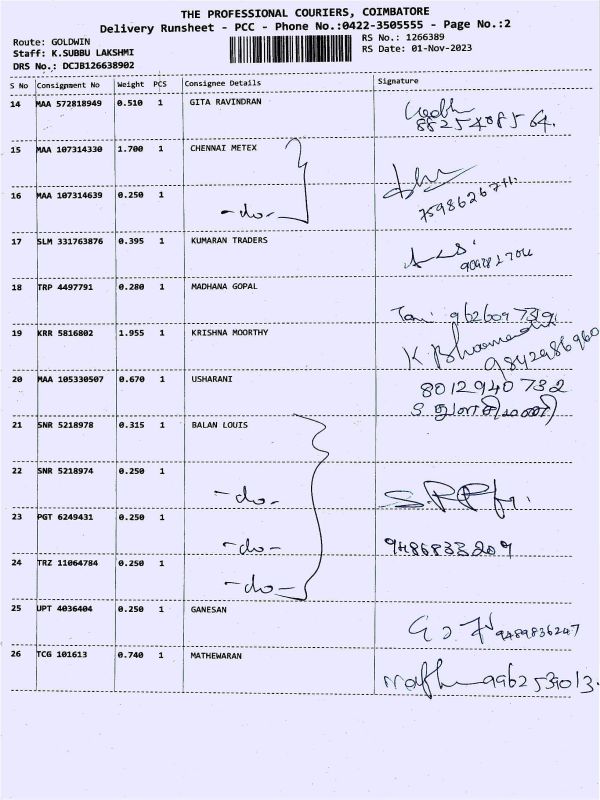 THE PROFESSIONAL COURIERS, COIMBATORE
Delivery Runsheet - PCC - Phone No.:0422-3505555 - Page No.:2
Route: GOLDWIN
Staff: K.SUBBU LAKSHMI
DRS No.: DCJB126638902
RS No.: 1266389
RS Date: 01-Nov-2023
S No Consignment No Weight PCS Consignee Details Signature
14 MAA 572818949 0.510 1 GITA RAVINDRAN
8825408564.
15 MAA 107314330 1.700 1 CHENNAI METEX
16 MAA 107314639 0.250 1
-do-
17 SLM 331763876 0.395 1 KUMARAN TRADERS
18 TRP 4497791 0.280 1 MADHANA GOPAL
19 KRR 5816802 1.955 1 KRISHNA MOORTHY
9842986960
20 MAA 105330507 0.670 1 USHARANI
8012940732
21 SNR 5218978 0.315 1 BALAN LOUIS
22 SNR 5218974 0.250 1
-do-
23 PGT 6249431 0.250 1
-do-
9486833209
24 TRZ 11064784 0.250 1
-do-
25 UPT 4036404 0.250 1 GANESAN
9489836247
26 TCG 101613 0.740 1 MATHEWARAN
9962539013.